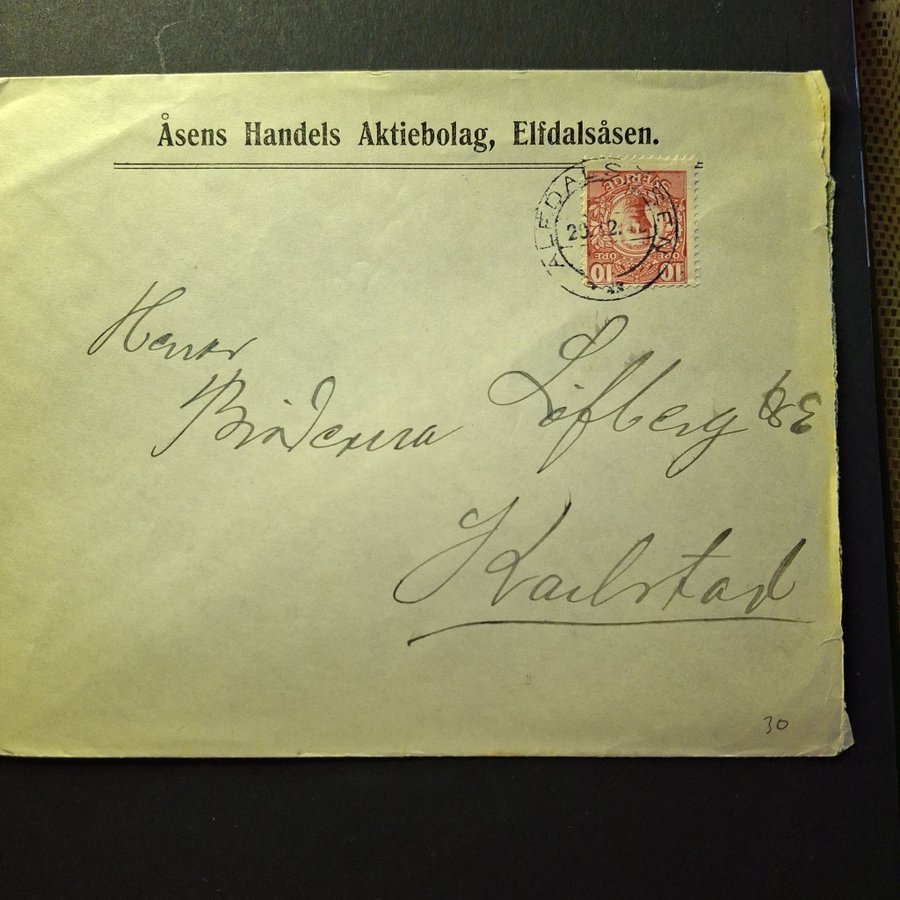 Åsens Handels Aktiebolag, Elfdalsåsen.
ÄLFDALSÅSEN
20.12.
SVERIGE
ÖRE ÖRE
10 10
Herrar
Bröderna Löfberg
Karlstad
30